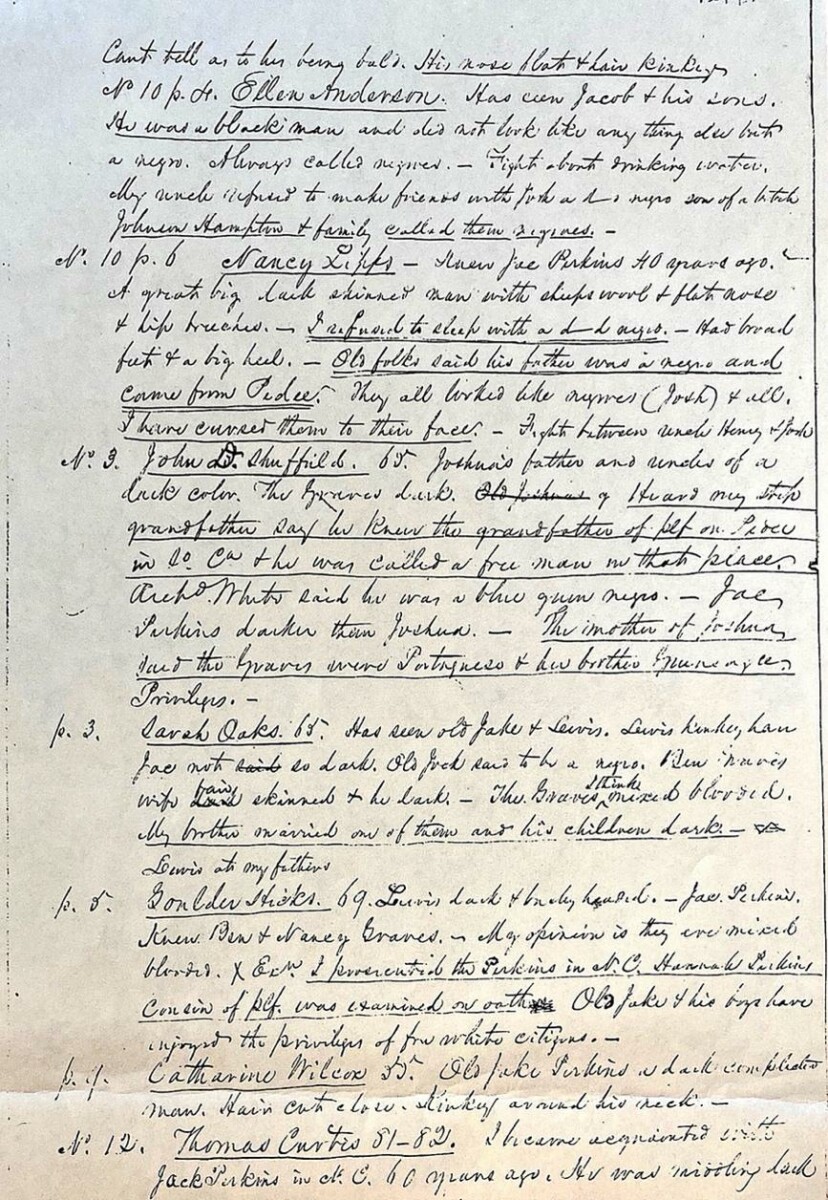 Cant tell as to his being bald. His nose flat & hair kinkey
No 10 p. 4. Ellen Anderson. Has seen Jacob & his sons.
He was a black man and did not look like any thing else but
a negro. Always called negroes. – Fight about drinking water.
My uncle refused to make friends with Josh a d–d negro son of a bitch
Johnson Hampton & family called them negroes. –
No. 10 p. 6 Nancy Lipps – Knew Jac Perkins 40 years ago.
A great big dark skinned man with sheeps wool & flat nose
& hip breeches. – I refused to sleep with a d–d negro. – Had broad
feet & a big heel. – Old folks said his father was a negro and
came from Pedee. They all looked like negroes (Josh) & all.
I have cursed them to their face. – Fight between uncle Henry & Josh
No. 3. John D. Shuffield. 65. Joshua's father and uncles of a
dark color. The Graves dark. Old Joshuas g Heard my step
grandfather say he knew the grandfather of plf on Pedee
in So Ca & he was called a free man in that place.
Archd. White said he was a blue gum negro. – Jac
Perkins darker than Joshua. – The mother of Joshua
said the Graves were Portuguese & her brother
Privileges. –
p. 3. Sarah Oaks. 65. Has seen old Jake & Lewis. Lewis kinkey hair
Jac not said so dark. Old Jock said to be a negro. Ben Graves
wife fair skinned & he dark. – The Graves I think mixed blooded.
My brother married one of them and his children dark. –
Lewis at my fathers
p. 5. Goulder Hicks. 69. Lewis dark & bushy headed. – Jac Perkins.
Knew Ben & Nancy Graves. – My opinion is they are mixed
blooded. X Exn I prosecuted the Perkins in N. C. Hannah Perkins
cousin of plf. was examined on oath Old Jake & his boys have
enjoyed the privileges of free white citizens. –
p. 9. Catharine Wilcox 55. Old Jake Perkins a dark complected
man. Hair cut close. Kinkey around his neck. –
No. 12. Thomas Curtis 81–82. I became acquainted with
Jack Perkins in N. C. 60 years ago. He was middling dark